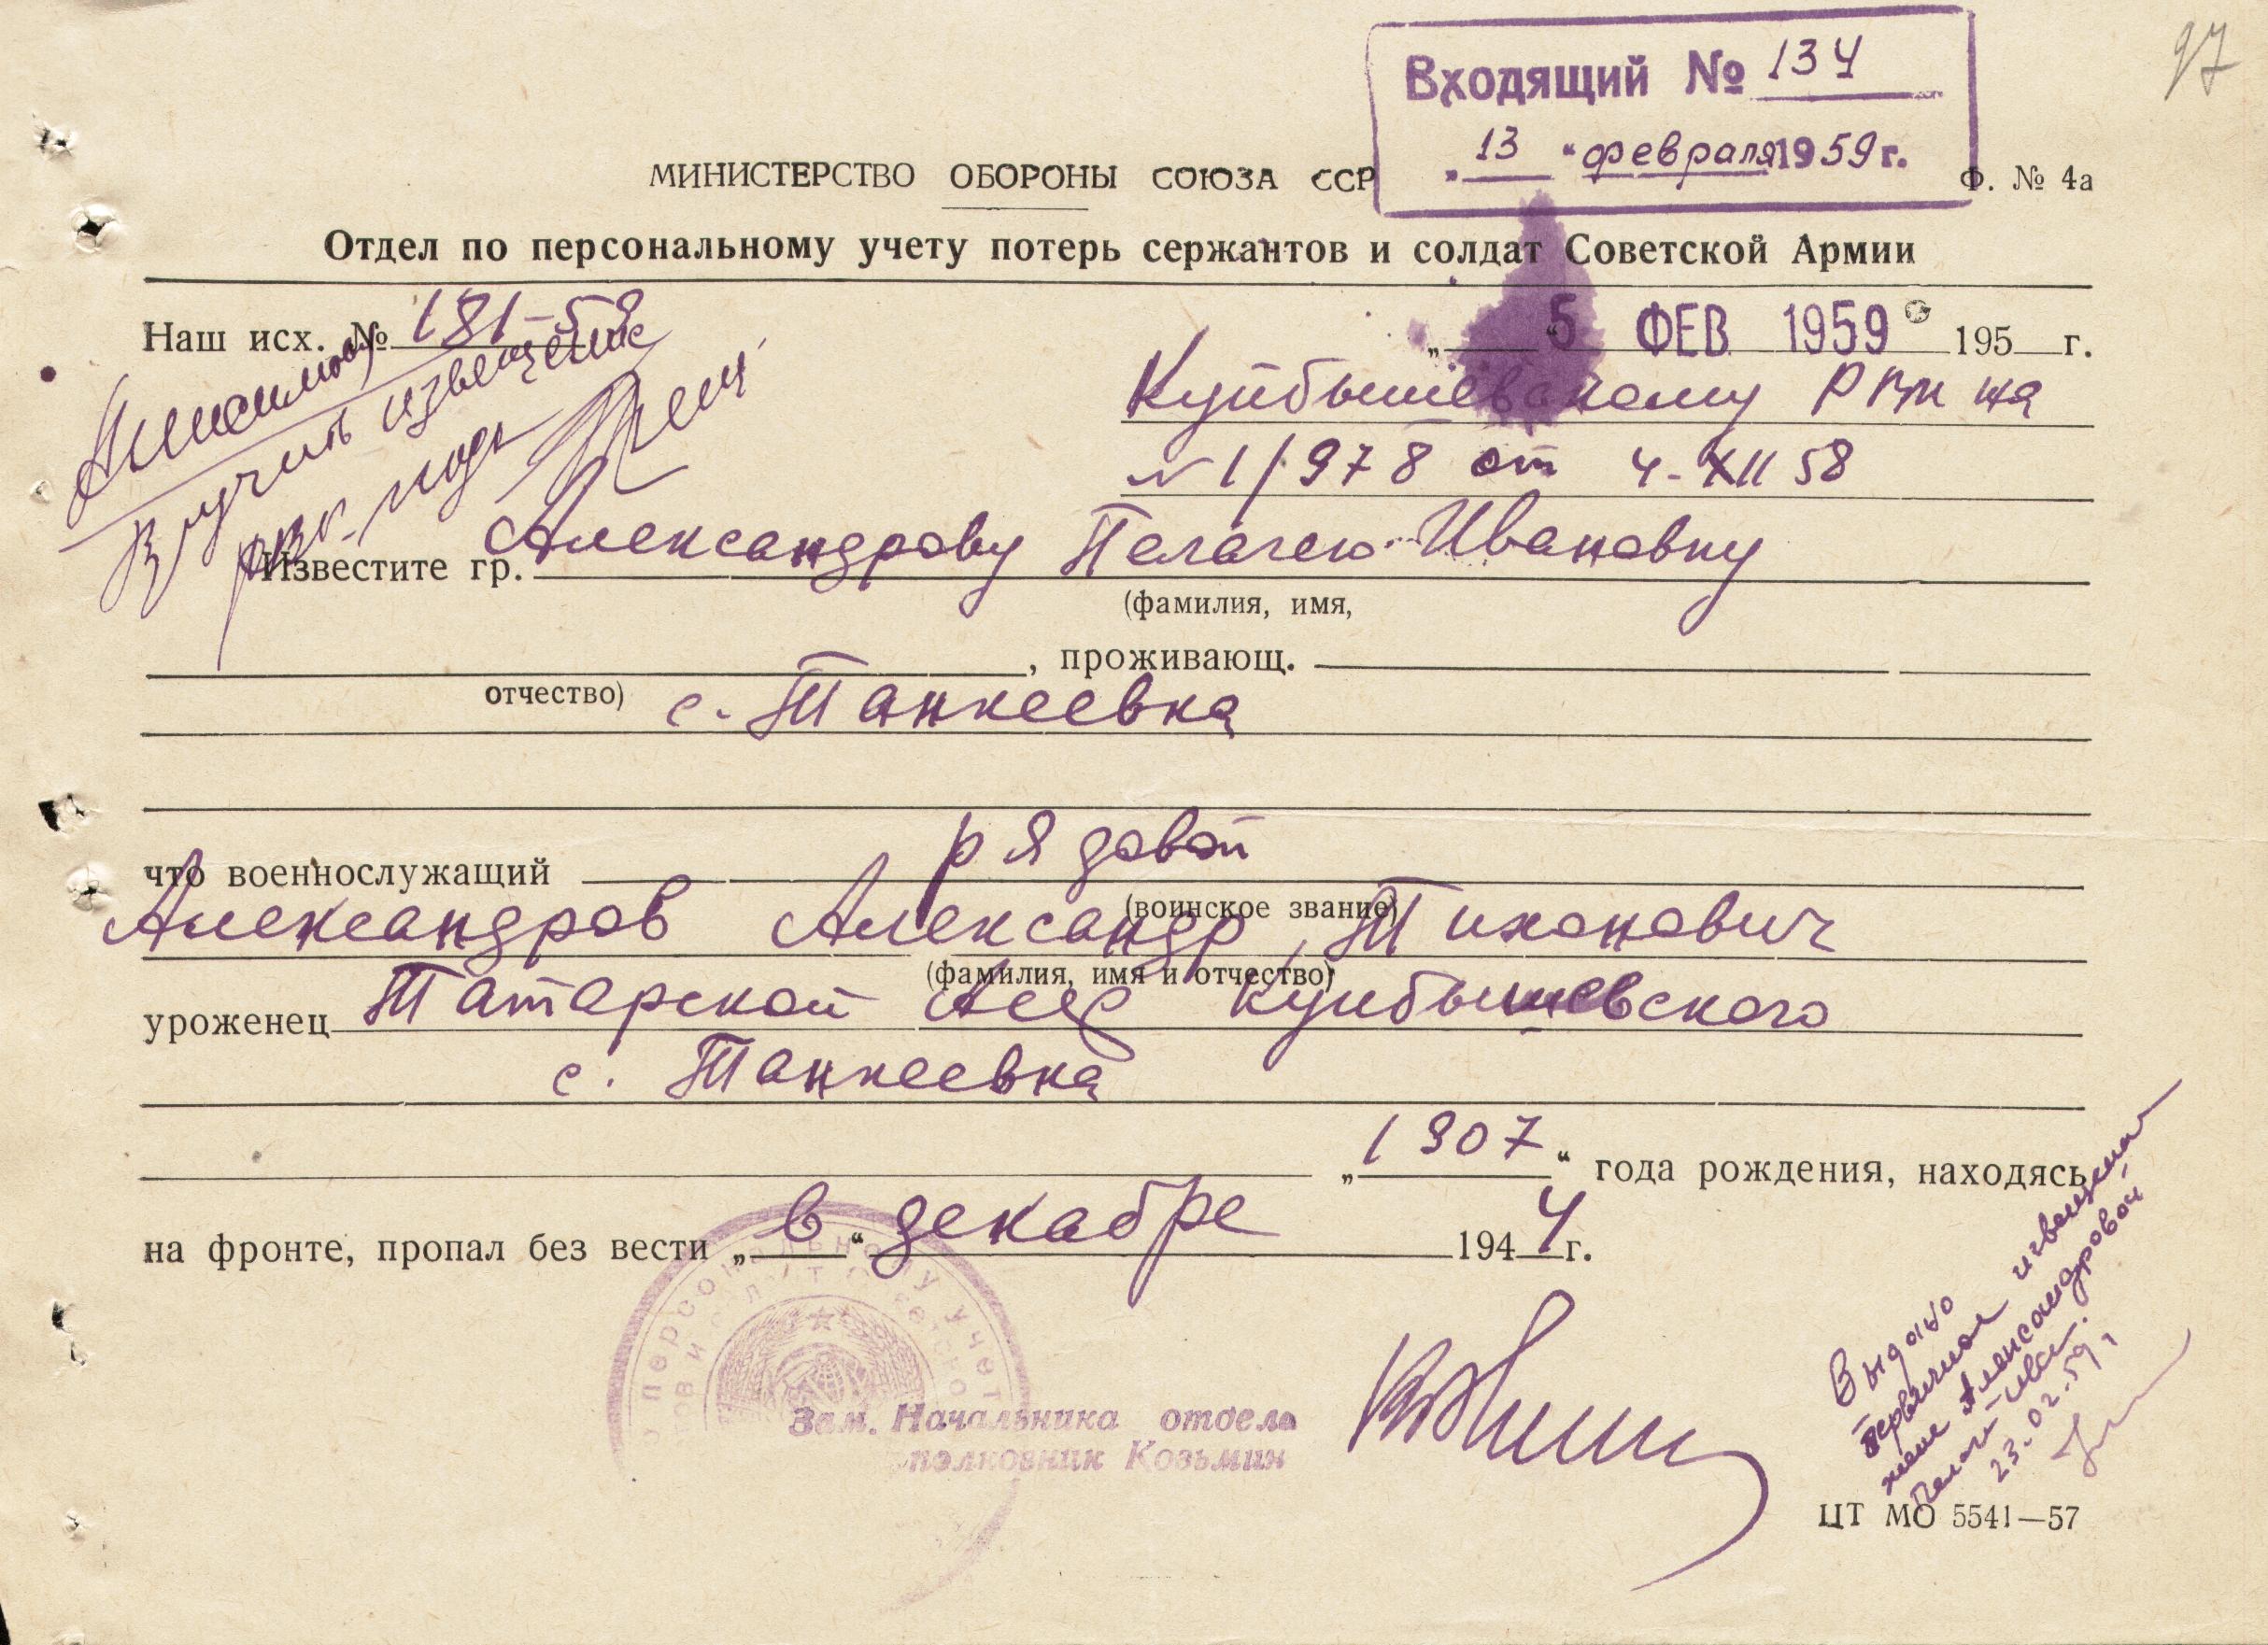 97
Входящий № 134
„ 13 “ февраля 1959 г.
МИНИСТЕРСТВО ОБОРОНЫ СОЮЗА ССР
Ф. № 4а
Отдел по персональному учету потерь сержантов и солдат Советской Армии
Наш исх. № 181-59
„ 5 ФЕВ 1959 195 г.
Вручить извещение
Куйбышевскому РВК на
№ 1/978 от 4-XII 58
Известите гр. Александрову Пелагею Ивановну
(фамилия, имя,
, проживающ.
отчество)
с. Танкеевка
что военнослужащий рядовой
(воинское звание)
Александров Александр Тихонович
(фамилия, имя и отчество)
уроженец Татарской АССР Куйбышевского
с. Танкеевка
„ 1907 “ года рождения, находясь
на фронте, пропал без вести „ в “ декабре 1944 г.
Зам. Начальника отдела
полковник Козьмин
Выдано
первичное извещение
жене Александровой
Пелаг. Иван.
23.02.59 г
ЦТ МО 5541—57